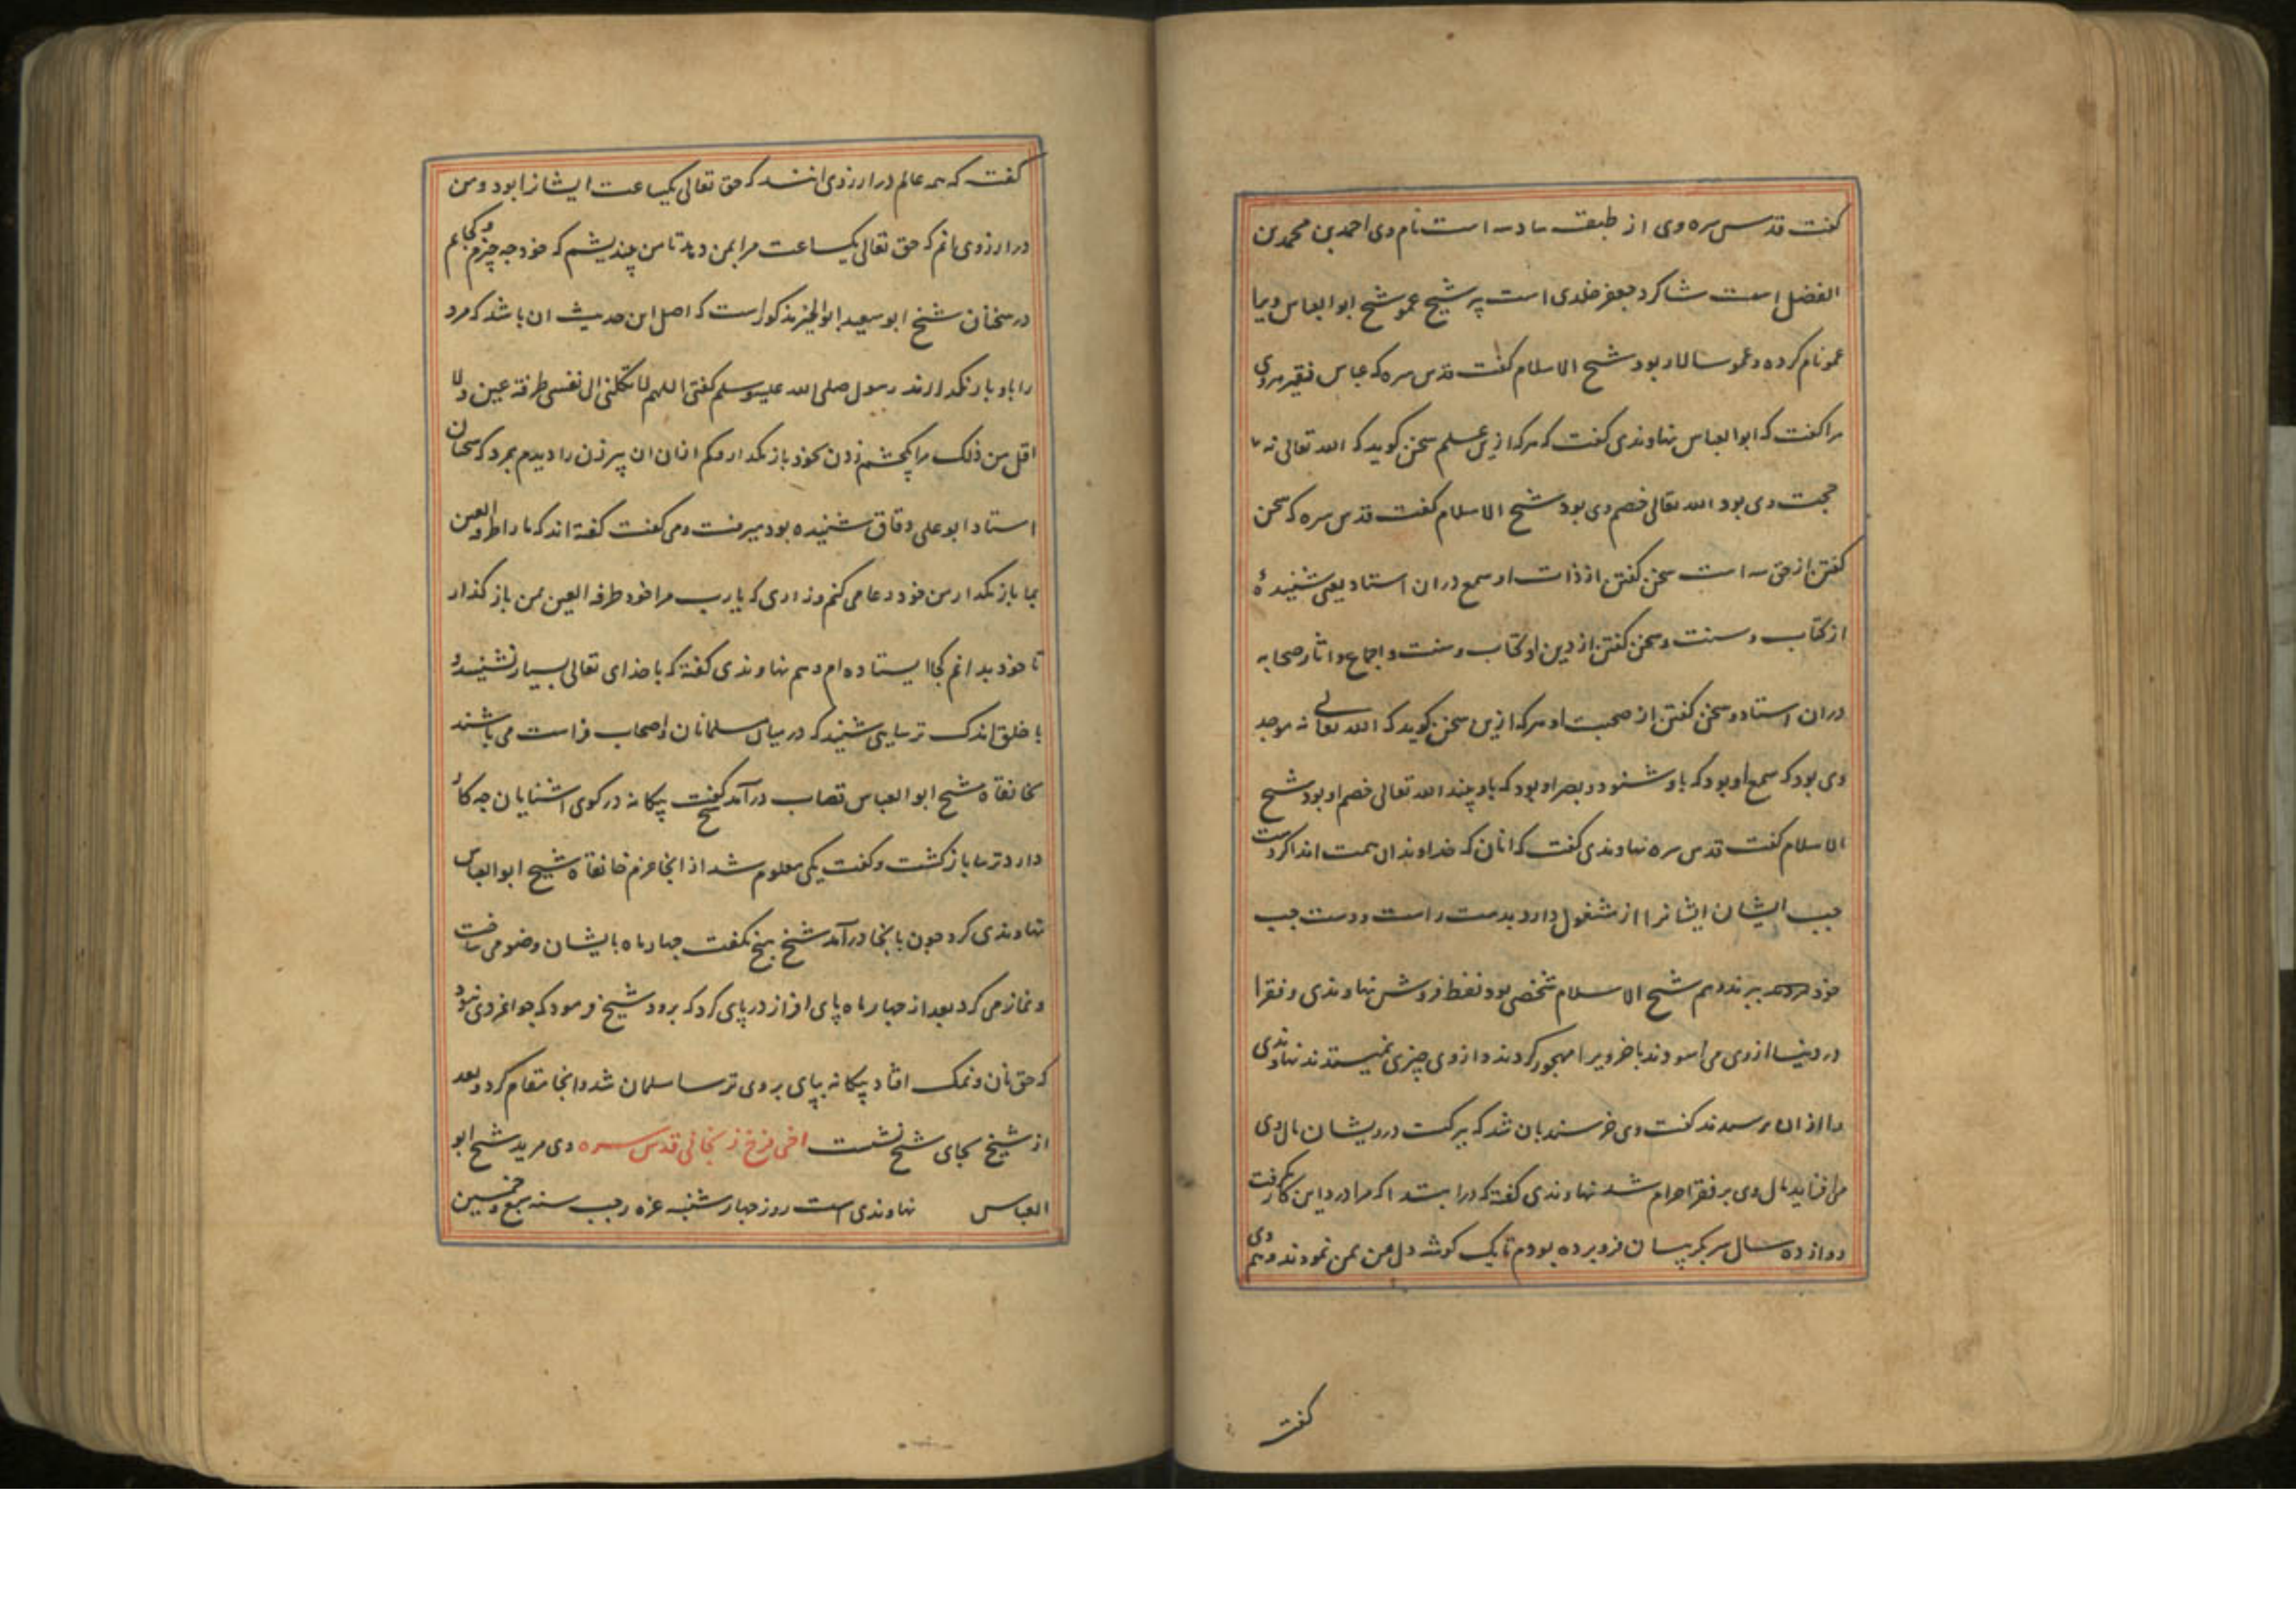 کفت قدس سره وی از طبقه سادسه است نام وی احمد بن محمد بن
الفضل است شاکرد جعفر خلدی است پیر شیخ عمو شیخ ابو العباس ویرا
عمو نام کرده و عمو سالار بود شیخ الاسلام کفت قدس سره که عباس فقیر هروی
مرا کفت که ابوالعباس نهاوندی کفت که هرکه ازین علم سخن کوید که الله تعالی نه
حجت وی بود الله تعالی خصم وی بود شیخ الاسلام کفت قدس سره که سخن
کفتن از حق سه است سخن کفتن از ذات او سمع دران استاد یعنی شنیدهٔ
از کتاب و سنت و سخن کفتن از دین او کتاب و سنت و اجماع و اثار صحابه
دران استاد و سخن کفتن از صحبت او هرکه ازین سخن کوید که الله تعالی نه موجد
وی بود که سمع او بود که باو شنود و بصر او بود که باو بیند الله تعالی خصم او بود شیخ
الاسلام کفت قدس سره نهاوندی کفت که انان که خداوندان همت اند اکر دست
چب ایشان ایشانرا از مشغول دارد بدست راست دست چب
خود ببرند و هم شیخ الاسلام شخصی بود نفط فروش نهاوندی و فقرا
در دنیا ازوی می اسودند باخر ویرا مهجور کردند و ازوی چیزی نمیستدند نهاوندی
را از ان پرسیدند کفت وی خرسند بان شد که ببرکت درویشان مال وی
می افزاید مال وی بر فقرا حرام شد نهاوندی کفته که در ابتدا که مرا درد این کار کرفت
دوازده سال سر بکریبان فرو برده بودم تا یک کوشه دل من بمن نمودند و هم وی
کفت
کفت که همه عالم در ارزوی انند که حق تعالی یکساعت ایشانرا بود و من
در ارزوی انم که حق تعالی یکساعت مرا بمن دهد تا من بیندیشم که خود چه چیزم و کجایم
در سخنان شیخ ابو سعید ابو الخیر مذکور است که اصل این حدیث ان باشد که مرد
را باو باز نکذارند رسول صلی الله علیه وسلم کفتی اللهم لا تکلنی الی نفسی طرفة عین ولا
اقل من ذلک مرا یکچشم زدن بخود باز مکذار و کم ازان ان پیر زن را دیدم بمرو که سخنان
استاد ابو علی دقاق شنیده بود میرفت و می کفت کفته اند که ما را طرفة العین
بما باز مکذار من خود دعا می کنم و زاری که یارب مرا خود طرفة العین بمن باز کذار
تا خود بدانم کجا ایستاده ام و هم نهاوندی کفته که با خدای تعالی بسیار نشنید و
با خلق اندک ترسایی شنید که در میان مسلمانان اصحاب فراست می باشند
بخانقاه شیخ ابو العباس قصاب درآمد شیخ کفت بیکانه در کوی اشنایان چه کار
دارد ترسا باز کشت و کفت یکی معلوم شد از انجا عزم خانقاه شیخ ابو العباس
نهاوندی کرد چون بانجا درآمد شیخ هیچ نکفت چهار ماه با ایشان وضو می ساخت
و نماز می کرد بعد از چهار ماه پای افزار در پای کرد که برود شیخ فرمود که جوانمردی نبود
که حق نان و نمک افتاد بیکانه بیای بروی ترسا مسلمان شد و انجا مقام کرد و بعد
از شیخ بجای شیخ نشست اخی فرخ زنجانی قدس سره وی مرید شیخ ابو
العباس نهاوندی است روز چهار شنبه غره رجب سنه سبع و خمسین